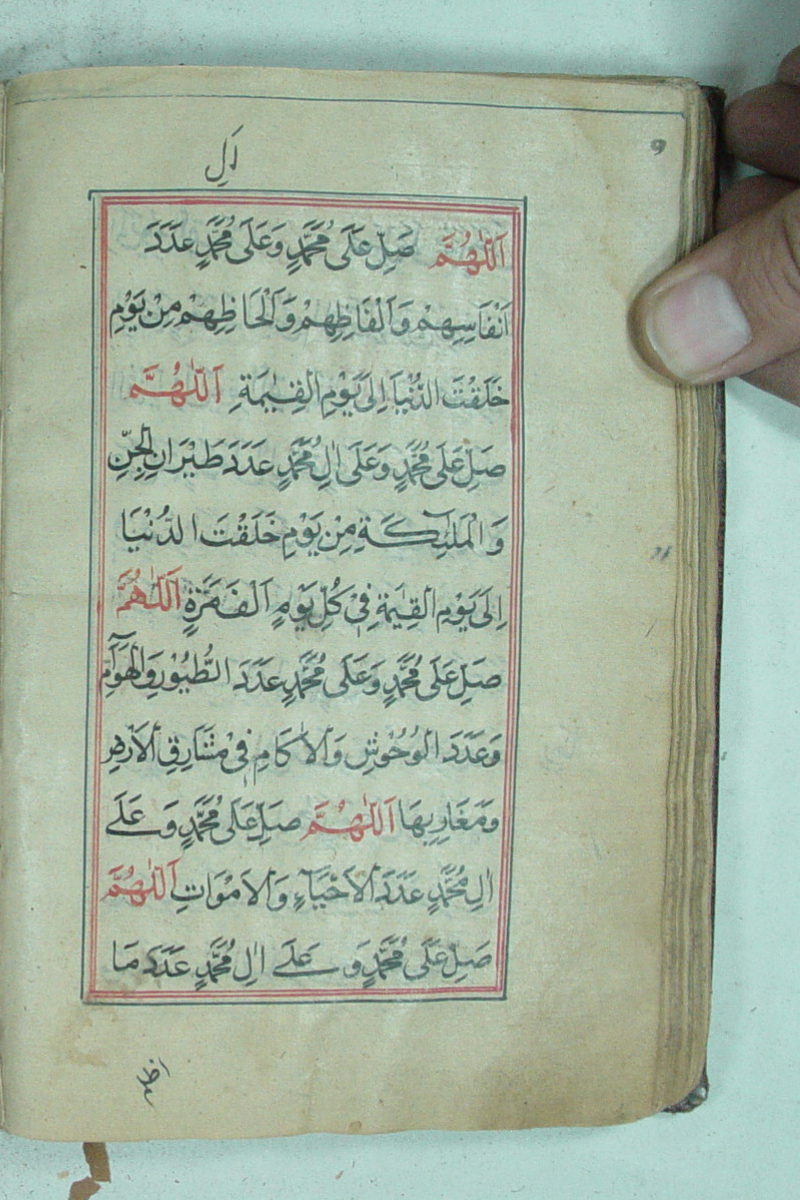 ٩
اٰلِ
اَللّٰهُمَّ صَلِّ عَلَى مُحَمَّدٍ وَعَلَى مُحَمَّدٍ عَدَدَ
اَنْفَاسِهِمْ وَاَلْفَاظِهِمْ وَاَلْحَاظِهِمْ مِنْ يَوْمِ
خَلَقْتَ الدُّنْيَا اِلَى يَوْمِ الْقِيٰمَةِ اَللّٰهُمَّ
صَلِّ عَلَى مُحَمَّدٍ وَعَلَى اٰلِ مُحَمَّدٍ عَدَدَ طَيْرَانِ الْجِنِّ
وَالْمَلٰئِكَةِ مِنْ يَوْمِ خَلَقْتَ الدُّنْيَا
اِلَى يَوْمِ الْقِيٰمَةِ فِيْ كُلِّ يَوْمٍ اَلْفَ مَرَّةٍ اَللّٰهُمَّ
صَلِّ عَلَى مُحَمَّدٍ وَعَلَى مُحَمَّدٍ عَدَدَ الطُّيُوْرِ وَالْهَوَآمِّ
وَعَدَدَ الْوُحُوْشِ وَالْاٰكَامِ فِيْ مَشَارِقِ الْاَرْضِ
وَمَغَارِبِهَا اَللّٰهُمَّ صَلِّ عَلَى مُحَمَّدٍ وَعَلَى
اٰلِ مُحَمَّدٍ عَدَدَ الْاَحْيَاءِ وَالْاَمْوَاتِ اَللّٰهُمَّ
صَلِّ عَلَى مُحَمَّدٍ وَعَلَى اٰلِ مُحَمَّدٍ عَدَدَ مَا